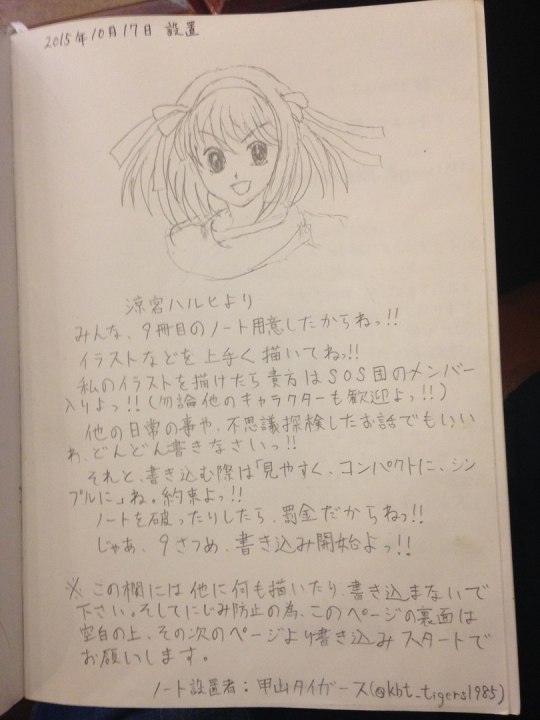 2015年10月17日 設置
涼宮ハルヒより
みんな、9冊目のノート用意したからねっ!!
イラストなどを上手く描いてねっ!!
私のイラストを描けたら貴方はSOS団のメンバー
入りよっ!!(勿論他のキャラクターも歓迎よっ!!)
他の日常の事や、不思議探検したお話でもいい
わ、どんどん書きなさいっ!!
それと、書き込む際は「見やすく、コンパクトに、シン
プルに」ね。約束よっ!!
ノートを破ったりしたら、罰金だからねっ!!
じゃあ、9さつめ、書き込み開始よっ!!
※ この欄には他に何も描いたり、書き込まないで
下さい。そしてにじみ防止の為、このページの裏面は
空白の上、その次のページより書き込みスタートで
お願いします。
ノート設置者:甲山タイガース(@kbt_tigers1985)